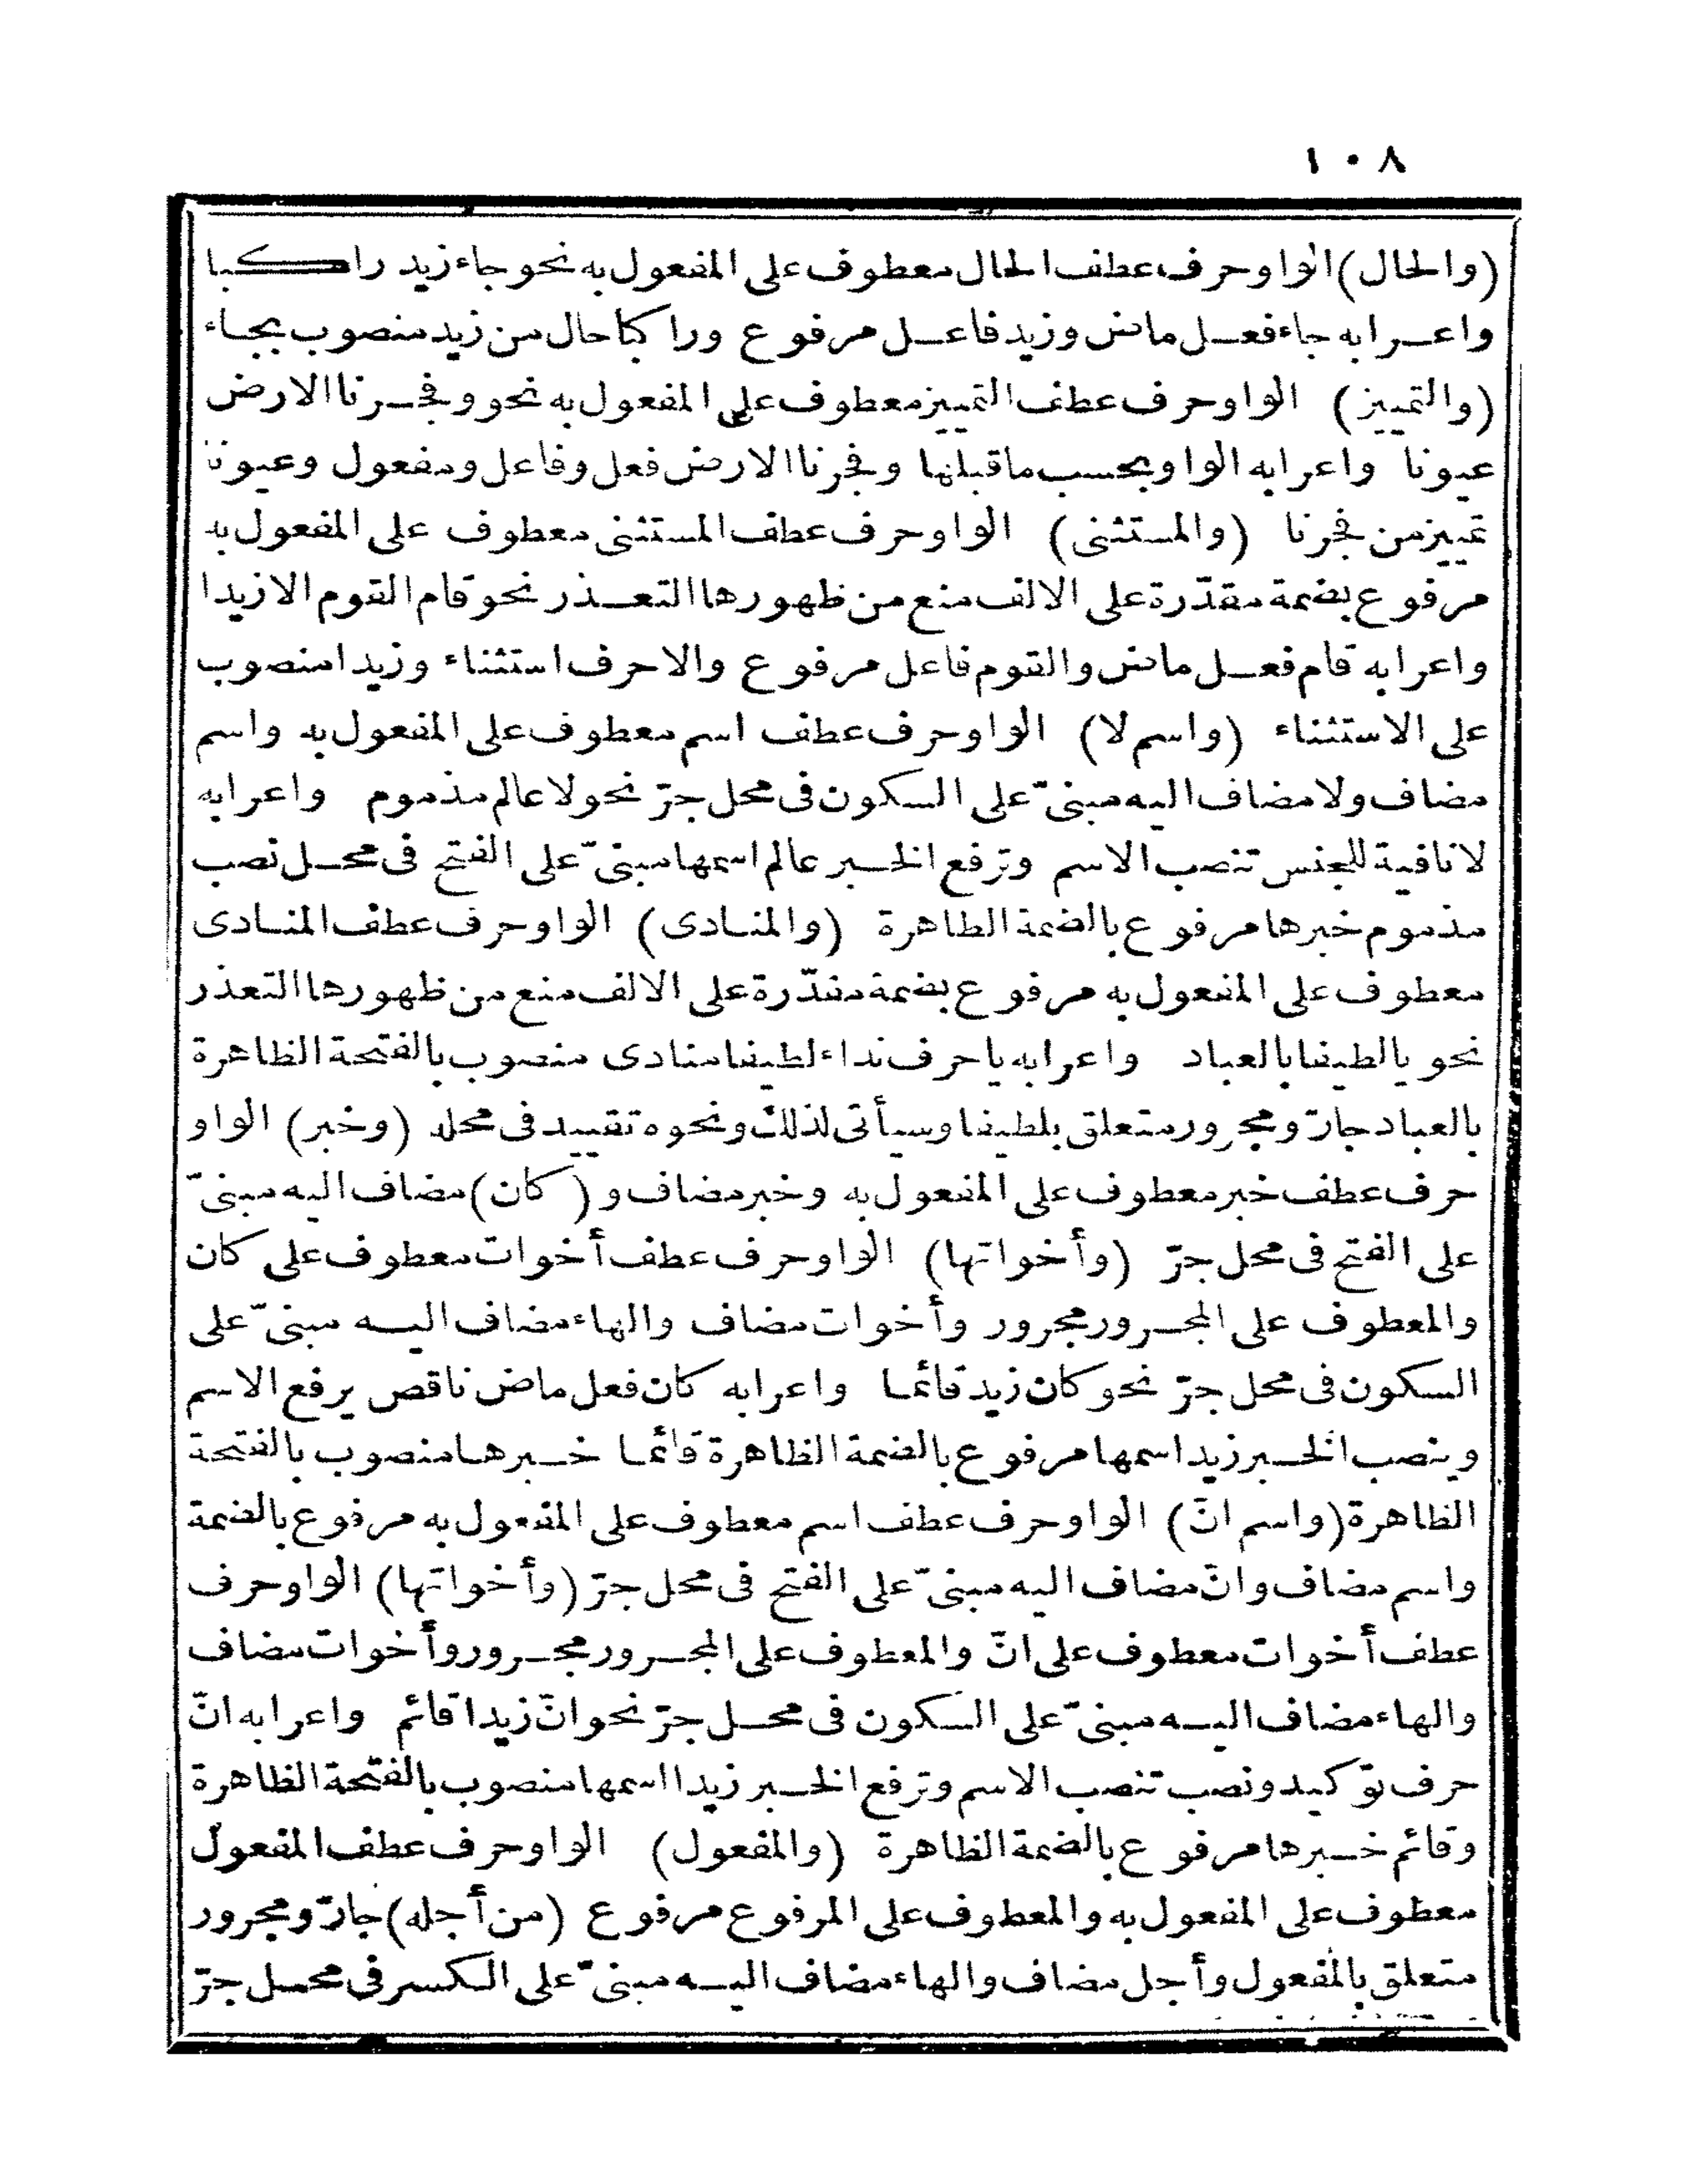 ١٠٨
(والحال) الواو حرف عطف الحال معطوف على المفعول به نحو جاء زيد راكبا
واعرابه جاء فعل ماض وزيد فاعل مرفوع وراكبا حال من زيد منصوب بجاء
(والتمييز) الواو حرف عطف التمييز معطوف على المفعول به نحو وفجرنا الارض
عيونا واعرابه الواو بحسب ما قبلها وفجرنا الارض فعل وفاعل ومفعول وعيونا
تمييز من فجرنا (والمستثنى) الواو حرف عطف المستثنى معطوف على المفعول به
مرفوع بضمة مقدّرة على الالف منع من ظهورها التعذر نحو قام القوم الا زيدا
واعرابه قام فعل ماض والقوم فاعل مرفوع والا حرف استثناء وزيدا منصوب
على الاستثناء (واسم لا) الواو حرف عطف اسم معطوف على المفعول به واسم
مضاف ولا مضاف اليه مبنىّ على السكون فى محل جرّ نحو لا عالم مذموم واعرابه
لا نافية للجنس تنصب الاسم وترفع الخبر عالم اسمها مبنىّ على الفتح فى محل نصب
مذموم خبرها مرفوع بالضمة الظاهرة (والمنادى) الواو حرف عطف المنادى
معطوف على المفعول به مرفوع بضمة مقدّرة على الالف منع من ظهورها التعذر
نحو يا لطيفا بالعباد واعرابه يا حرف نداء لطيفا منادى منصوب بالفتحة الظاهرة
بالعباد جارّ ومجرور متعلق بلطيفا وسيأتى لذلك ونحوه تقييد فى محله (وخبر) الواو
حرف عطف خبر معطوف على المفعول به وخبر مضاف و(كان) مضاف اليه مبنىّ
على الفتح فى محل جرّ (وأخواتها) الواو حرف عطف أخوات معطوف على كان
والمعطوف على المجرور مجرور وأخوات مضاف والهاء مضاف اليه مبنىّ على
السكون فى محل جرّ نحو كان زيد قائما واعرابه كان فعل ماض ناقص يرفع الاسم
وينصب الخبر زيد اسمها مرفوع بالضمة الظاهرة قائما خبرها منصوب بالفتحة
الظاهرة (واسم انّ) الواو حرف عطف اسم معطوف على المفعول به مرفوع بالضمة
واسم مضاف وانّ مضاف اليه مبنىّ على الفتح فى محل جرّ (وأخواتها) الواو حرف
عطف أخوات معطوف على انّ والمعطوف على المجرور مجرور وأخوات مضاف
والهاء مضاف اليه مبنىّ على السكون فى محل جرّ نحو انّ زيدا قائم واعرابه انّ
حرف توكيد ونصب تنصب الاسم وترفع الخبر زيدا اسمها منصوب بالفتحة الظاهرة
وقائم خبرها مرفوع بالضمة الظاهرة (والمفعول) الواو حرف عطف المفعول
معطوف على المفعول به والمعطوف على المرفوع مرفوع (من أجله) جارّ ومجرور
متعلق بالمفعول وأجل مضاف والهاء مضاف اليه مبنىّ على الكسر فى محل جرّ